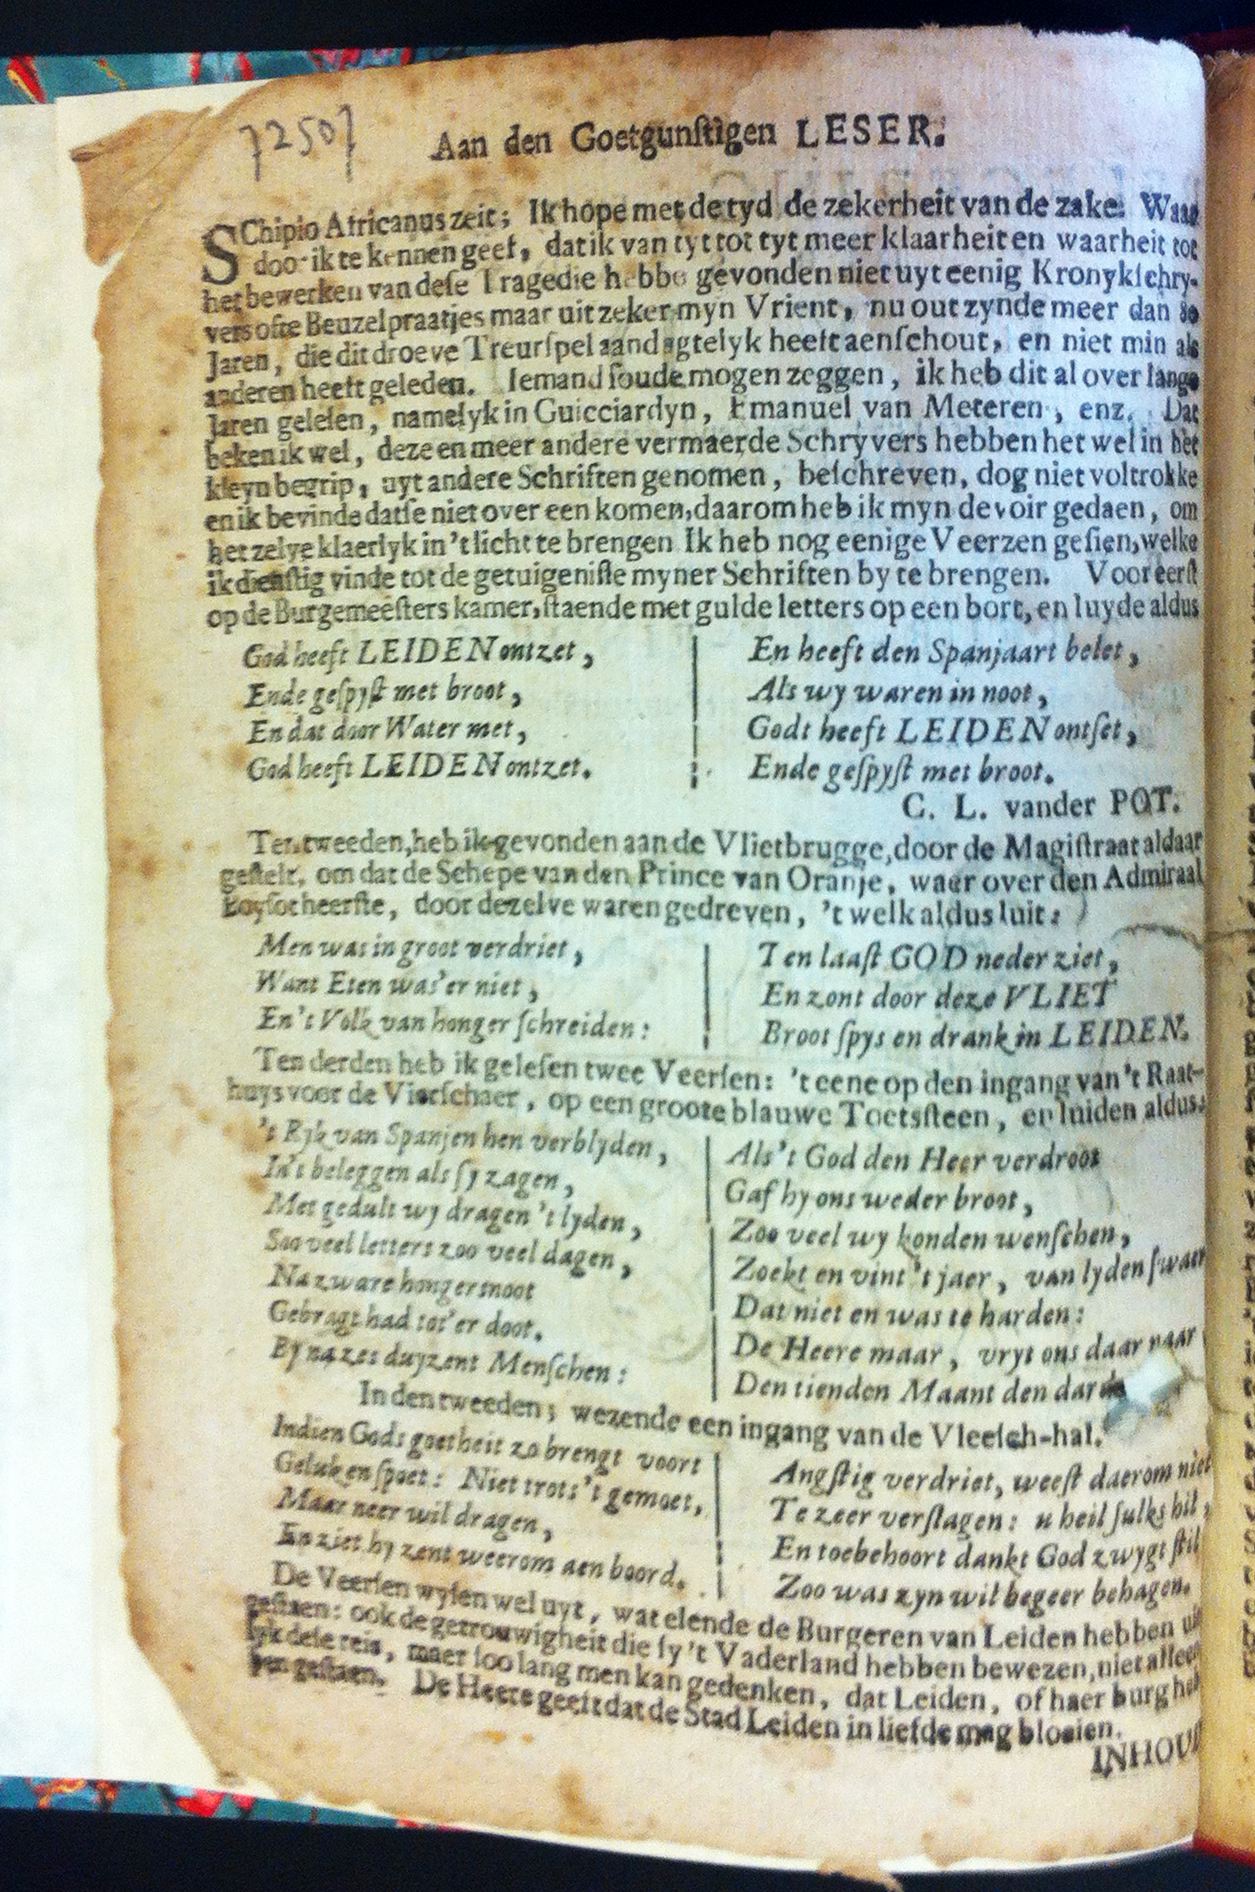 7250
Aan den Goetgunſtigen LESER.
SChipio Africanus zeit; Ik hope met de tyd de zekerheit van de zake: Waar
door ik te kennen geef, dat ik van tyt tot tyt meer klaarheit en waarheit tot
het bewerken van deſe Tragedie hebbe gevonden niet uyt eenig Kronykſchry-
vers ofte Beuzelpraatjes maar uit zeker myn Vrient, nu out zynde meer dan 80
Jaren, die dit droeve Treurſpel aandagtelyk heeft aenſchout, en niet min als
anderen heeft geleden. Iemand ſoude mogen zeggen, ik heb dit al over lange
Jaren geleſen, namelyk in Guicciardyn, Emanuel van Meteren, enz. Dat
beken ik wel, deze en meer andere vermaerde Schryvers hebben het wel in het
kleyn begrip, uyt andere Schriften genomen, beſchreven, dog niet voltrokke
en ik bevinde datſe niet over een komen, daarom heb ik myn devoir gedaen, om
het zelve klaerlyk in 't licht te brengen Ik heb nog eenige Veerzen geſien, welke
ik dienſtig vinde tot de getuigeniſſe myner Schriften by te brengen. Vooreerſt
op de Burgemeeſters kamer, ſtaende met gulde letters op een bort, en luyde aldus
God heeft LEIDEN ontzet,
Ende geſpyſt met broot,
En dat door Water met,
God heeft LEIDEN ontzet.
En heeft den Spanjaart belet,
Als wy waren in noot,
Godt heeft LEIDEN ontſet,
Ende geſpyſt met broot.
C. L. vander POT.
Ten tweeden, heb ik gevonden aan de Vlietbrugge, door de Magiſtraat aldaar
geſtelt, om dat de Schepe van den Prince van Oranje, waer over den Admiraal
Boyſot heerſte, door dezelve waren gedreven, 't welk aldus luit:
Men was in groot verdriet,
Want Eten was'er niet,
En 't Volk van honger ſchreiden:
Ten laaſt GOD neder ziet,
En zont door deze VLIET
Broot ſpys en drank in LEIDEN.
Ten derden heb ik geleſen twee Veerſen: 't eene op den ingang van 't Raat-
huys voor de Vierſchaer, op een groote blauwe Toetsſteen, en luiden aldus:
't Ryk van Spanjen hen verblyden,
In't beleggen als ſy zagen,
Met gedult wy dragen 't lyden,
Soo veel letters zoo veel dagen,
Na zware hongersnoot
Gebragt had tot'er doot.
By na zes duyzent Menſchen:
Als 't God den Heer verdroot
Gaf hy ons weder broot,
Zoo veel wy konden wenſchen,
Zoekt en vint 't jaer, van lyden ſwaer
Dat niet en was te harden:
De Heere maar, vryt ons daar naar
Den tienden Maant den
In den tweeden; wezende een ingang van de Vleeſch-hal.
Indien Gods goetheit zo brengt voort
Geluk en ſpoet: Niet trots 't gemoet,
Maar neer wil dragen,
En ziet hy zent weerom aen boord.
Angſtig verdriet, weeſt daerom niet
Te zeer verſlagen: u heil ſulks hil,
En toebehoort dankt God zwygt ſtil
Zoo was zyn wil begeer behagen.
De Veerſen wyſen wel uyt, wat elende de Burgeren van Leiden hebben uit
geſtaen: ook de getrouwigheit die ſy 't Vaderland hebben bewezen, niet alleen
lyk deſe reis, maer ſoo lang men kan gedenken, dat Leiden, of haer burg heb
ben geſtaen. De Heere geeft dat de Stad Leiden in liefde mag bloeien.
INHOUT